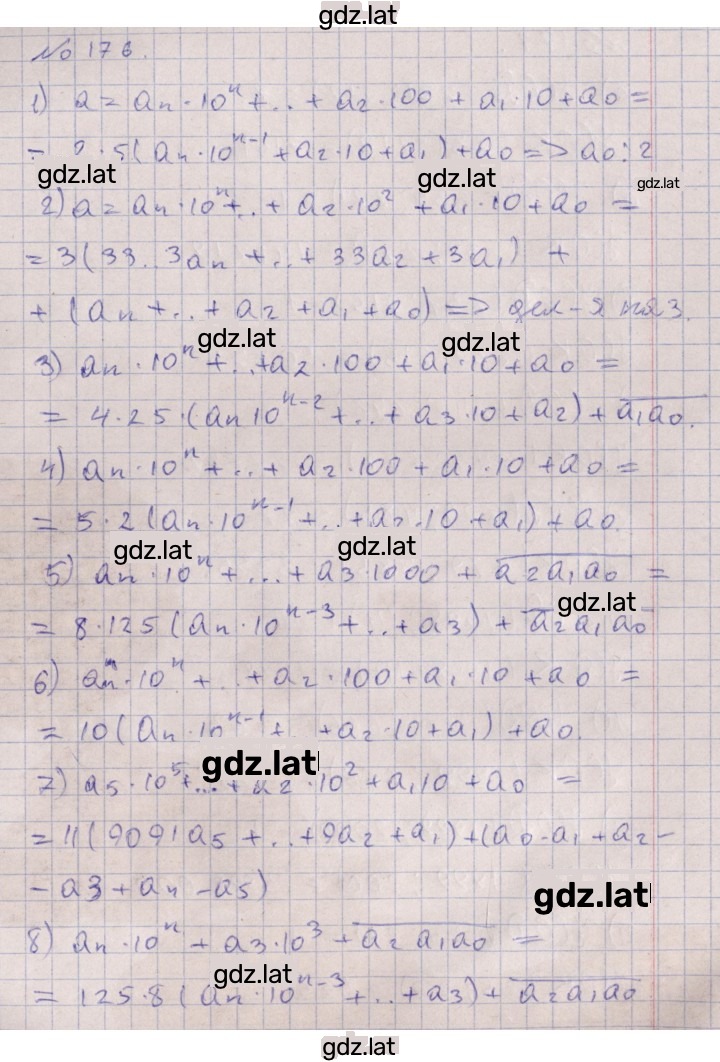 gdz.lat
№ 176.
1) a = aₙ · 10ⁿ + .. + a₂ · 100 + a₁ · 10 + a₀ =
= 2 · 5 (aₙ · 10ⁿ⁻¹ + a₂ · 10 + a₁) + a₀ => a₀ ⋮ 2
gdz.lat gdz.lat gdz.lat
2) a = aₙ · 10ⁿ + .. + a₂ · 10² + a₁ · 10 + a₀ =
= 3 (33..3aₙ + .. + 33a₂ + 3a₁) +
+ (aₙ + .. + a₂ + a₁ + a₀) => дел-я на 3.
gdz.lat gdz.lat
3) aₙ · 10ⁿ + .. + a₂ · 100 + a₁ · 10 + a₀ =
= 4 · 25 · (aₙ 10ⁿ⁻² + .. + a₃ · 10 + a₂) + a̅₁a̅₀.
4) aₙ · 10ⁿ + .. + a₂ · 100 + a₁ · 10 + a₀ =
= 5 · 2 (aₙ · 10ⁿ⁻¹ + .. + a₂ · 10 + a₁) + a₀.
gdz.lat gdz.lat
5) aₙ · 10ⁿ + ... + a₃ · 1000 + a̅₂a̅₁a̅₀ =
gdz.lat
= 8 · 125 (aₙ · 10ⁿ⁻³ + .. + a₃) + a̅₂a̅₁a̅₀
6) aₙ · 10ⁿ + .. + a₂ · 100 + a₁ · 10 + a₀ =
= 10 (aₙ · 10ⁿ⁻¹ + .. + a₂ · 10 + a₁) + a₀.
gdz.lat
7) a₅ · 10⁵ + ... + a₂ · 10² + a₁10 + a₀ =
= 11 (9091a₅ + .. + 9a₂ + a₁) + (a₀ - a₁ + a₂ -
- a₃ + aₙ - a₅)
gdz.lat
8) aₙ · 10ⁿ + a₃ · 10³ + a̅₂a̅₁a̅₀ =
gdz.lat
= 125 · 8 (aₙ · 10ⁿ⁻³ + .. + a₃) + a̅₂a̅₁a̅₀
gdz.lat